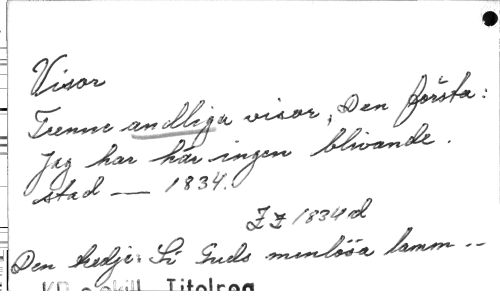 Visor
Trenne andliga visor, Den första:
Jag har här ingen blivande.
stad — 1834.
ZZ 1834 d
Den tredje: Si Guds menlösa lamm --
Titelreg